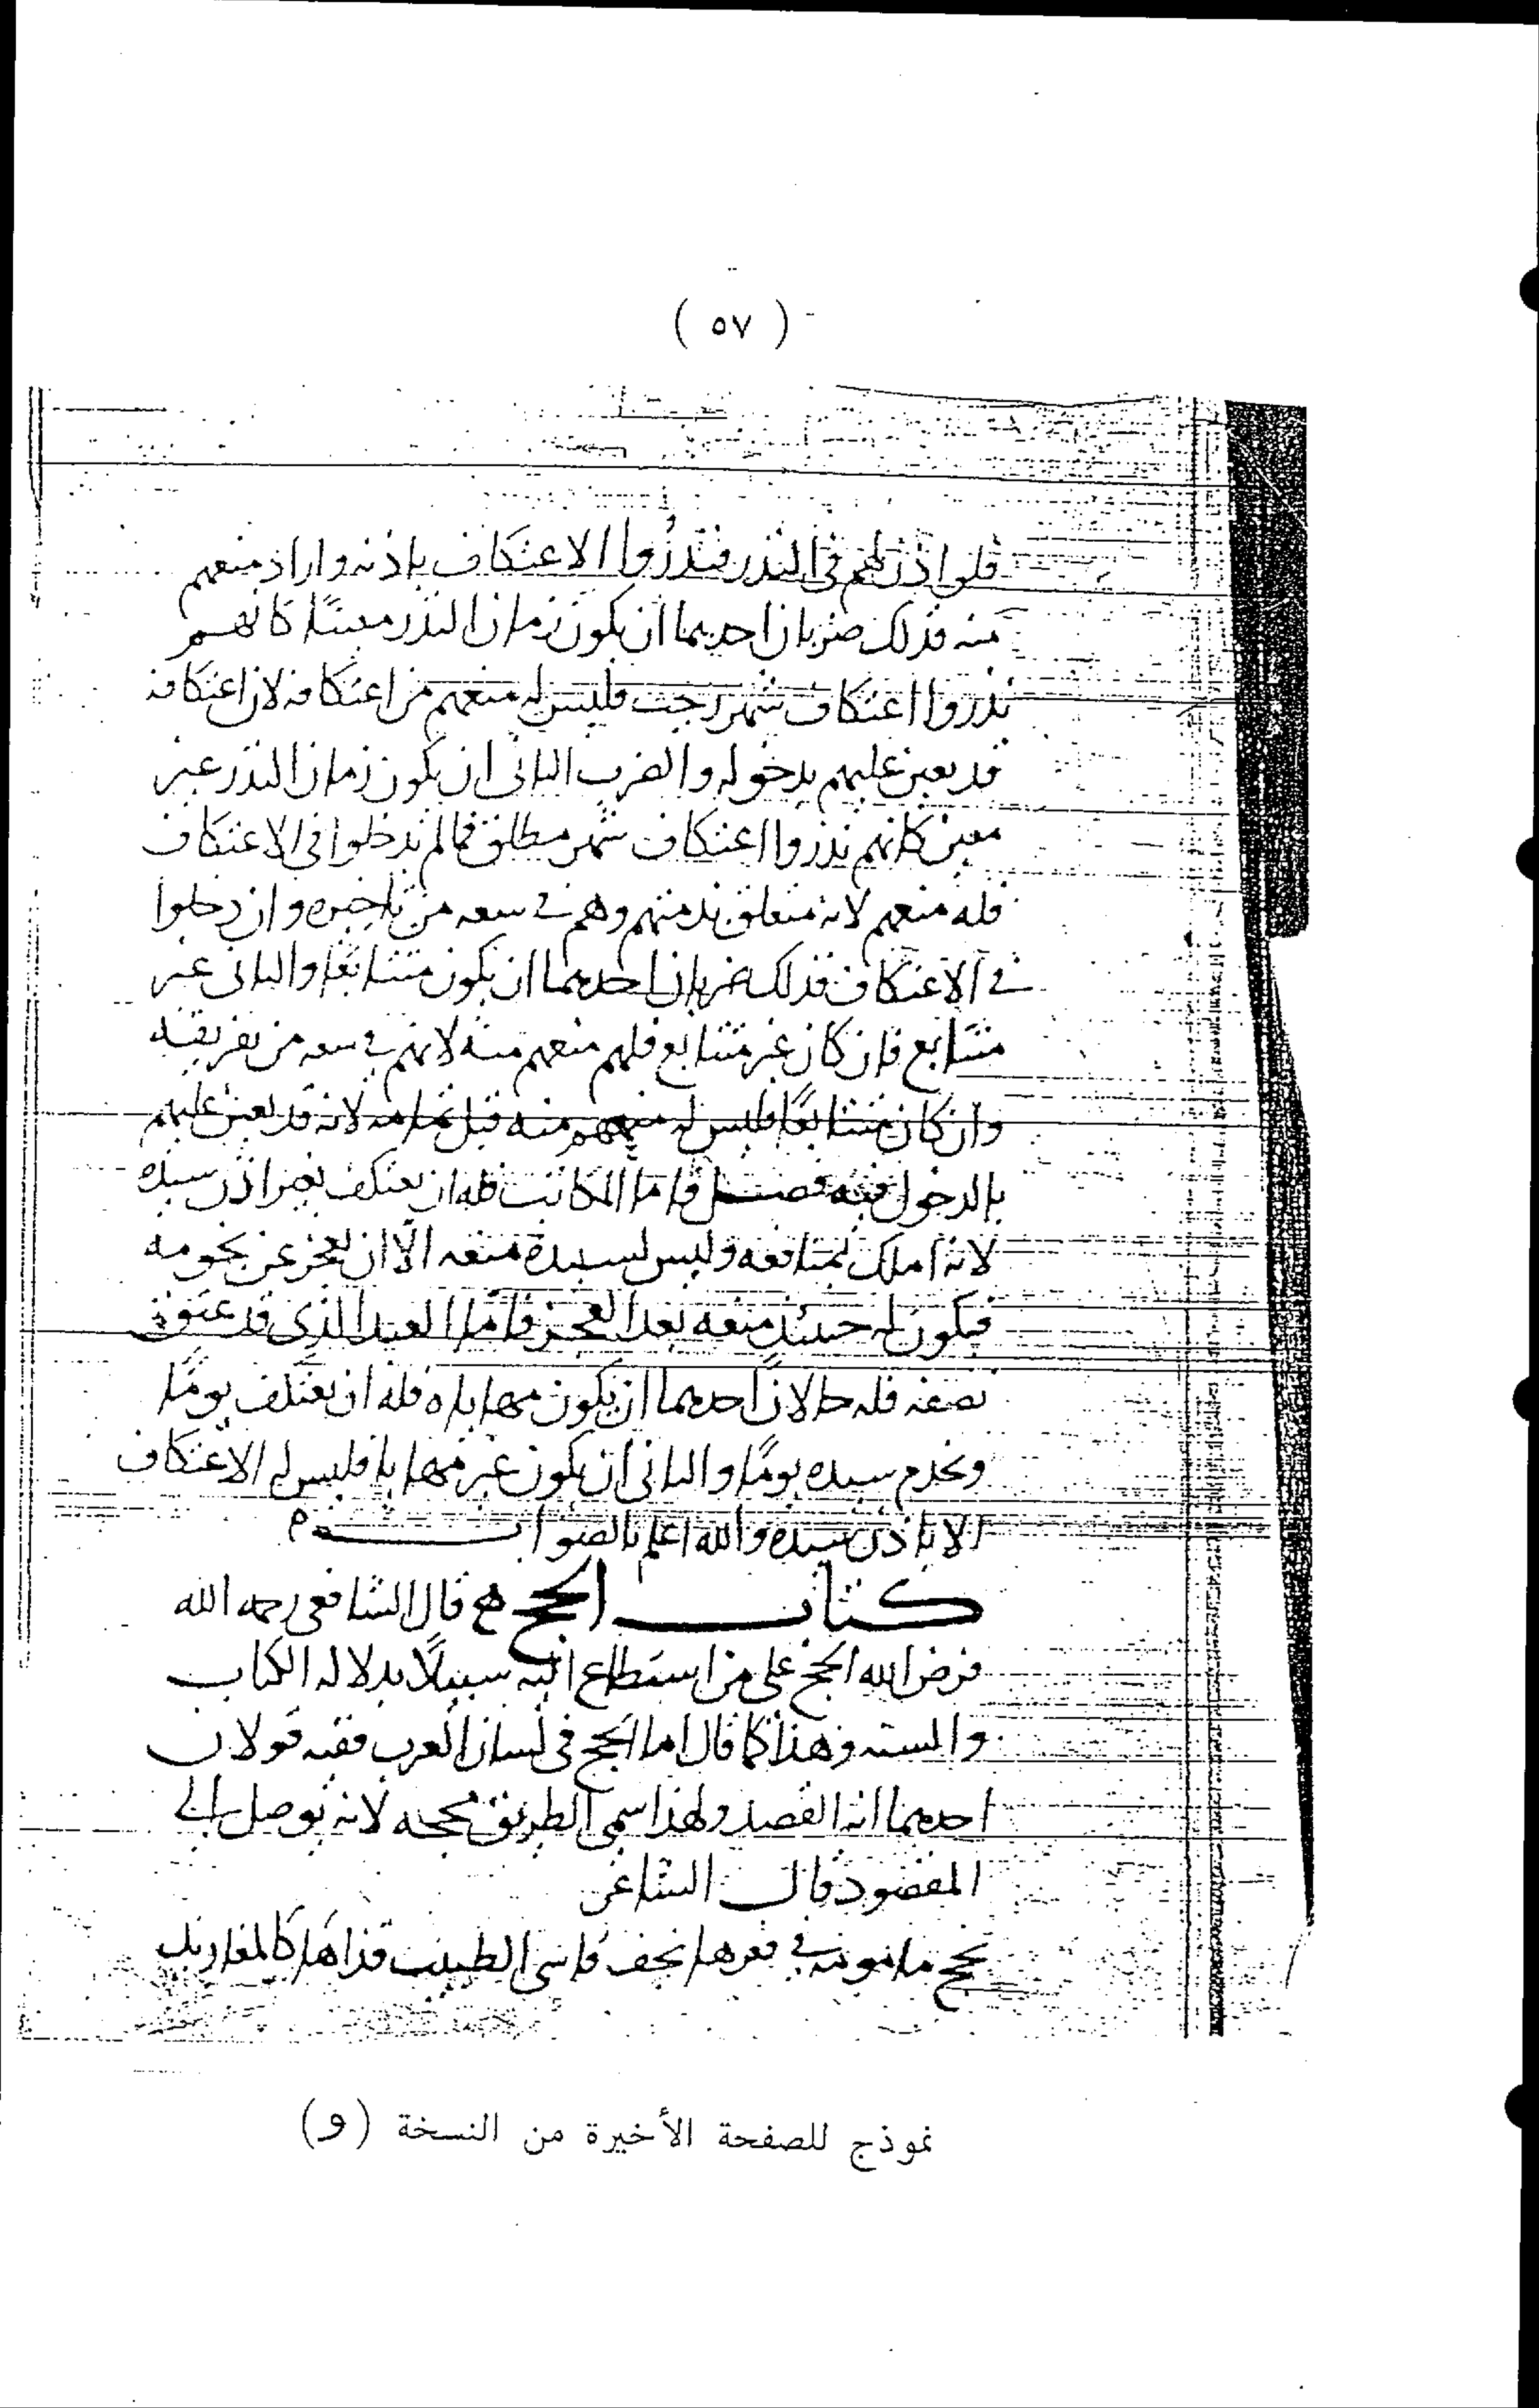 ( ٥٧ )
فلو اذن لهم في النذر فنذروا الاعتكاف باذنه واراد منعهم
منه فذلك ضربان احدهما ان يكون زمان النذر معينًا كانهم
نذروا اعتكاف شهر رجب فليس له منعهم من اعتكافه لان اعتكافه
قد تعين عليهم بدخوله والضرب الثاني ان يكون زمان النذر غير
معين كانهم نذروا اعتكاف شهر مطلق فما لم يدخلوا في الاعتكاف
فله منعهم لانه متعلق بذمتهم وهم في سعه من تاخيره وان دخلوا
في الاعتكاف فذلك ضربان احدهما ان يكون متتابعًا والثاني غير
متتابع فان كان غير متتابع فلهم منعهم منه لانهم في سعه من تفريقه
وان كان متتابعًا فليس له منعهم منه قبل تمامه لانه قد تعين عليهم
بالدخول فيه فصل فاما المكاتب فله ان يعتكف بغير اذن سيده
لانه املك لمنافعه وليس لسيده منعه الا ان يعجز عن نجومه
فيكون له حينئذ منعه بعد العجز فاما العبد الذي قد عتق
نصفه فله حالان احدهما ان يكون مهاياه فله ان يعتكف يومًا
ويخدم سيده يومًا والثاني ان يكون غير مهايا فليس له الاعتكاف
الا باذن سيده والله اعلم بالصواب
كتاب الحج قال الشافعي رحمه الله
فرض الله الحج على من استطاع اليه سبيلًا بدلاله الكتاب
والسنه وهذا كما قال اما الحج في لسان العرب ففيه قولان
احدهما انه القصد ولهذا سمي الطريق محجه لانه يوصل الى
المقصود قال الشاعر
يحج مامومه في قعرها لجف فاسى الطبيب قذاها كالمغاريد
نموذج للصفحة الأخيرة من النسخة (و)